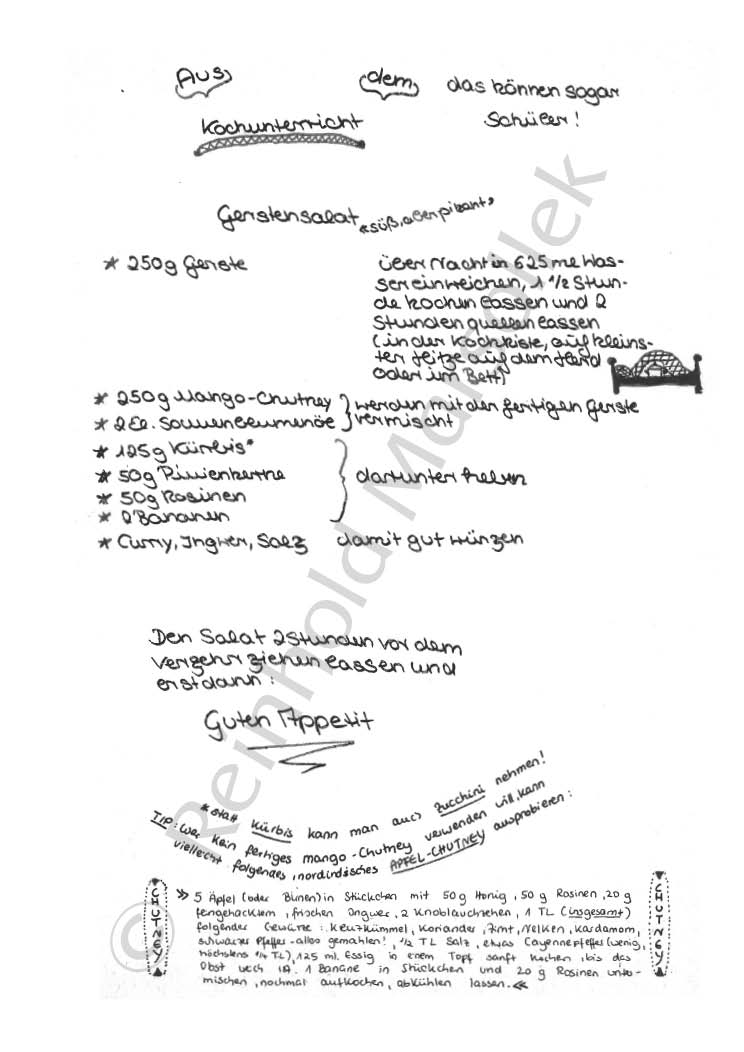 Aus dem das können sogar
Kochunterricht Schüler!
Gerstensalat „süß, aber pikant“
* 250g Gerste
über Nacht in 625 ml Was-
ser einweichen, 1 1/2 Stun-
de kochen lassen und 2
Stunden quellen lassen
(in der Kochkiste, auf kleins-
ter Hitze auf dem Herd
oder im Bett)
* 250g Mango-Chutney } werden mit der fertigen Gerste
* 2 El. Sonnenblumenöl } vermischt
* 125g Kürbis*
* 50g Pinienkerne } darunter heben
* 50g Rosinen
* 2 Bananen
* Curry, Ingwer, Salz damit gut würzen
Den Salat 2 Stunden vor dem
Verzehr ziehen lassen und
erst dann:
Guten Appetit
*statt Kürbis kann man auch Zucchini nehmen!
TIP: Wer kein fertiges Mango-Chutney verwenden will, kann
vielleicht folgendes, nordindisches APFEL-CHUTNEY ausprobieren:
CHUTNEY
» 5 Äpfel (oder Birnen) in Stückchen mit 50g Honig, 50g Rosinen, 20g
feingehacktem, frischen Ingwer, 2 Knoblauchzehen, 1 TL (insgesamt)
folgender Gewürze: Kreuzkümmel, Koriander, Zimt, Nelken, Kardamom,
schwarzer Pfeffer - alles gemahlen!, 1/2 TL Salz, etwas Cayennepfeffer (wenig,
höchstens 1/4 TL), 125 ml. Essig in einem Topf sanft kochen, bis das
Obst weich ist. 1 Banane in Stückchen und 20 g Rosinen unter-
mischen, nochmal aufkochen, abkühlen lassen. «
CHUTNEY
© Reinhold Marsollek